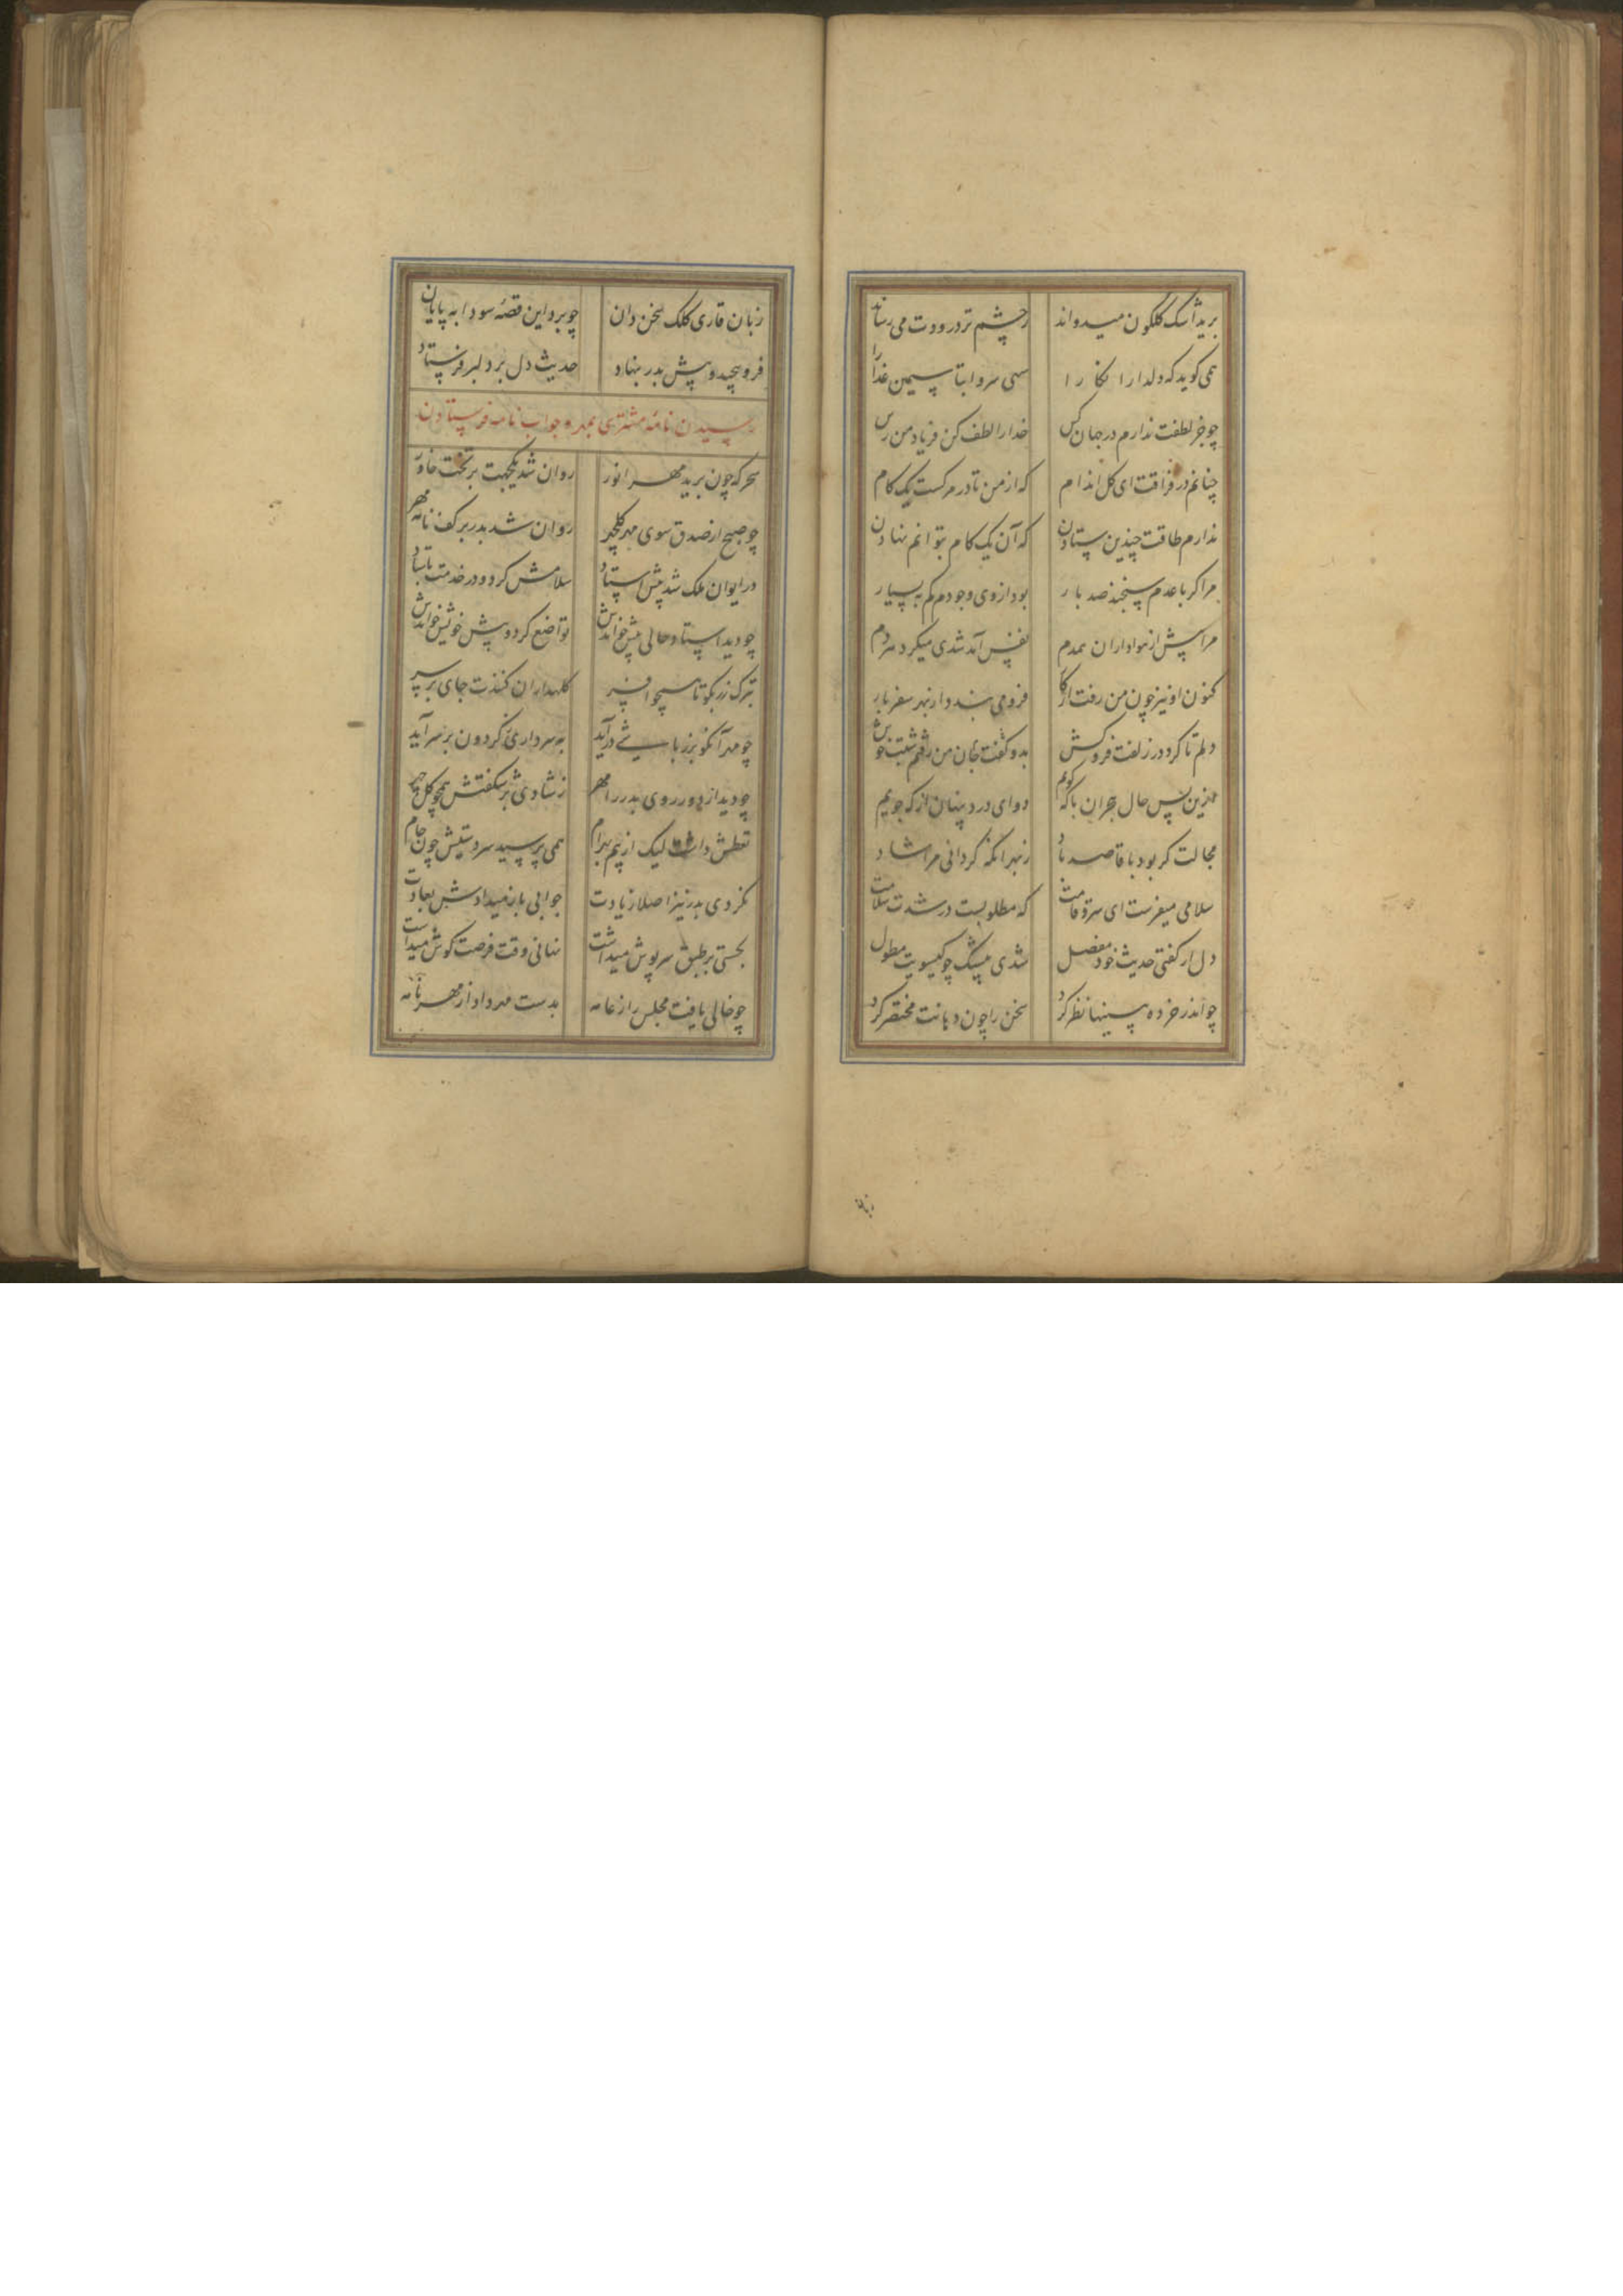 برید اشک گلگون میدواند ز چشم تر درودت می رساند
همی گوید که دلدارا نگارا سهی سروا بتا سیمین عذارا
چو جز لطفت ندارم در جهان کس خدا را لطف کن فریاد من رس
چنانم در فراقت ای کل اندام که از من تا در مرکست یک کام
ندارم طاقت چندین ستادن که آن یک کام بتوانم نهادن
مرا کر با عدم سنجند صد بار بود از وی وجودم کم به بسیار
مرا پیش از هواداران همدم نفس آمد شدی میکرد هر دم
کنون او نیز چون من رفت از کار فرو می بندد از بهر سفر بار
دلم تا کرد در زلفت فروکش بدو گفت جان من رفتم شبت خوش
ازین پس حال هجران با که گویم دوای درد پنهان از که جویم
مجالت کر بود با قاصد باد ز بهر آنکه کردانی مرا شاد
سلامی میفرست ای سرو قامت که مطلوبست در شدت سلامت
دل ار کفتی حدیث خود مفصل شدی بیشک چو کیسویت مطول
چو اندر خرده بینیها نظر کرد سخن را چون دهانت مختصر کرد
زبان
زبان قاری کلک سخن دان چو برد این قصه سودا به پایان
فرو پیچید و پیش بدر بنهاد حدیث دل بر دلبر فرستاد
رسیدن نامه مشتری بمهر و جواب نامه فرستادن
سحرکه چون برید مهر انور روان شد یکجهت بر تخت خاور
چو صبح از صدق سوی مهر کلچهر روان شد بدر بر کف نامه مهر
در ایوان ملک شد پیش استاد سلامش کرد و در خدمت باستاد
چو دید استاد حالی پیش خواندش تواضع کرد و پیش خویش خواندش
بترک زر بکو تا همچو افسر کلهداران کنندت جای بر سر
چو مهر آنکو بزر پاشی درآید به سرداری گردون بر سر آید
چو دید از دور روی بدر را مهر ز شادی بر شکفتش همچو کل چهر
تعطش داشت لیک از بیم بهرام همی پرسید سر دستیش چون جام
نکردی بدر نیز اصلا زیادت جوابی باز میدادش بعادت
بجستی بر طبق سرپوش میداشت نهانی وقت فرصت کوش میداشت
چو خالی یافت مجلس را ز عامه بدست مهر داد از مهر نامه